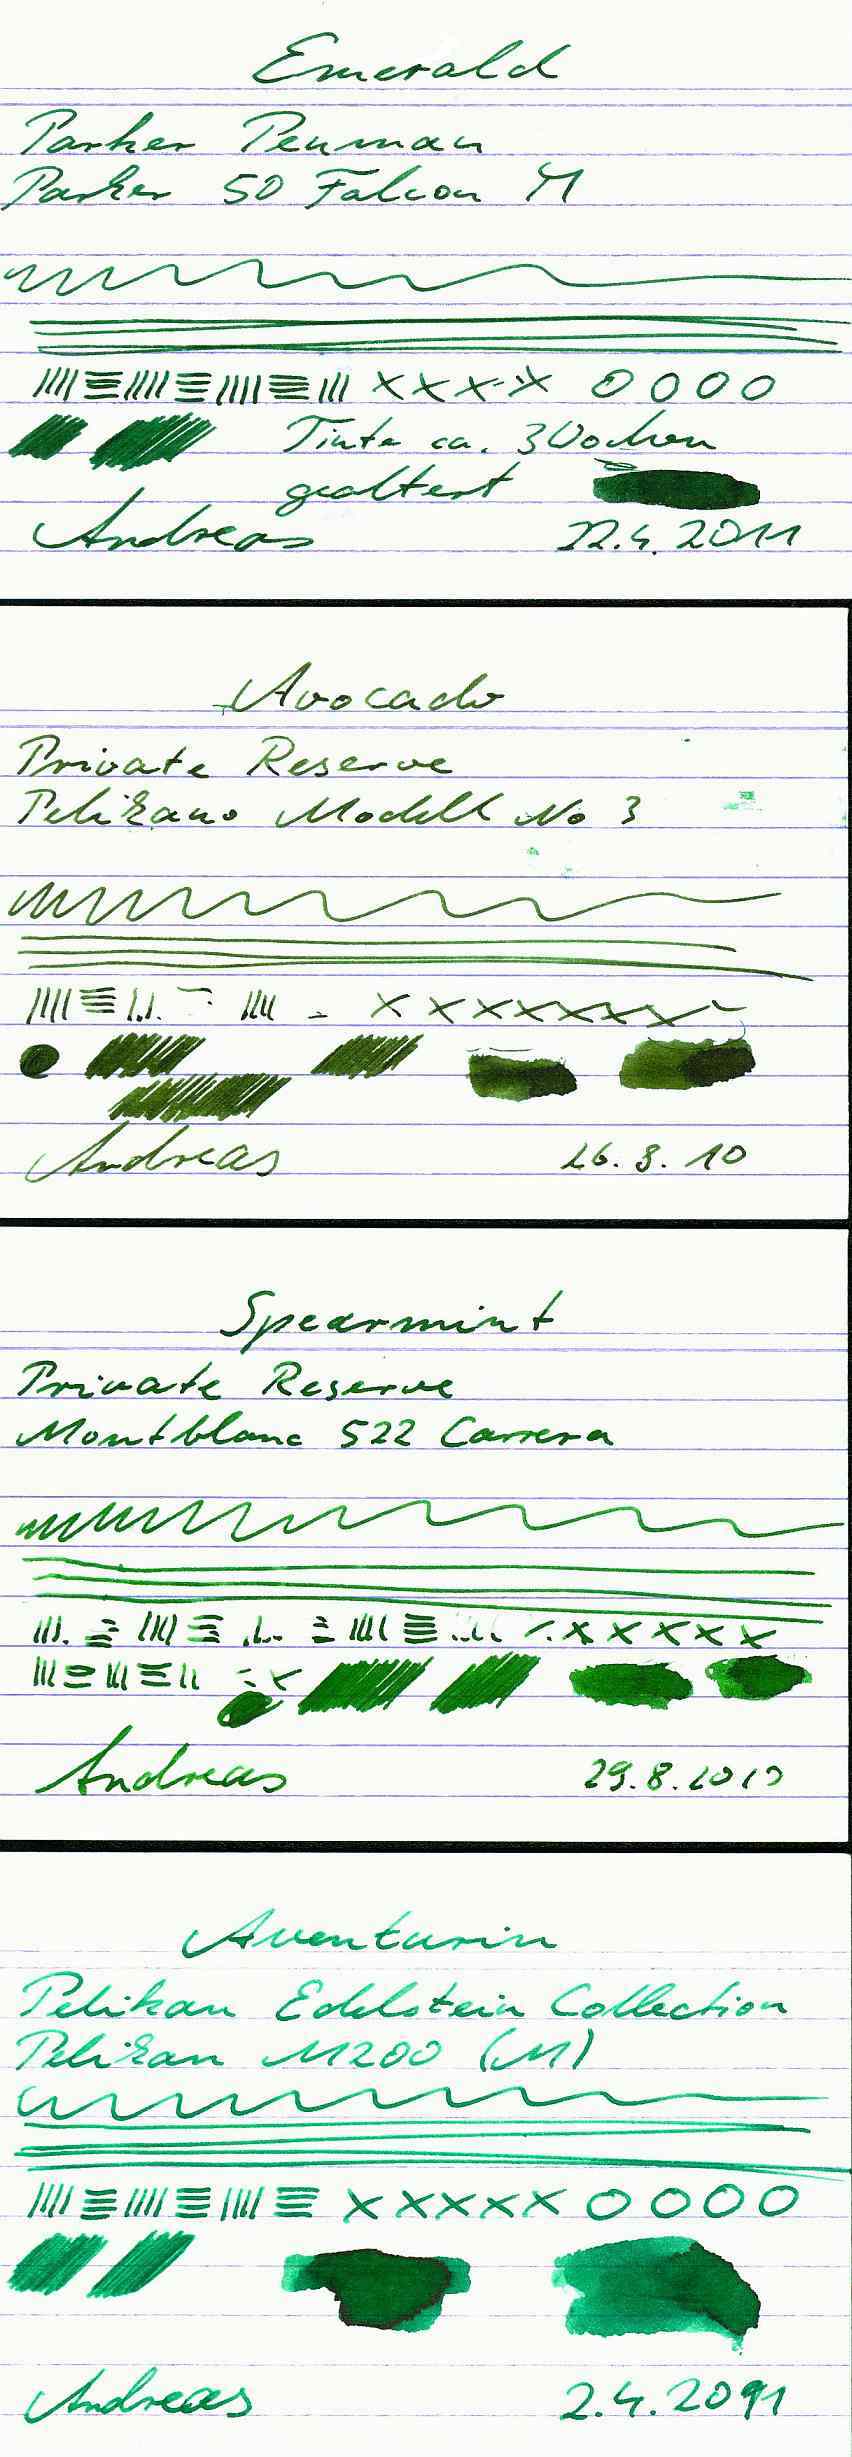 Emerald
Parker Penman
Parker 50 Falcon M
Tinte ca. 3 Wochen
gealtert
Andreas 22.4.2011
Avocado
Private Reserve
Pelikano Modell No 3
Andreas 26.8.10
Spearmint
Private Reserve
Montblanc 522 Carrera
Andreas 29.8.2010
Aventurin
Pelikan Edelstein Collection
Pelikan M200 (M)
Andreas 2.4.2011